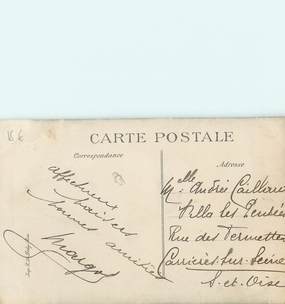 18 €
CARTE POSTALE
Correspondance
Adresse
affectueux
baisers
bonnes amitiés
Margot
Melle Andrée Caillaux
Villa les Pensées
Rue des Permettes
Carrières-sur-Seine
S.-et-Oise